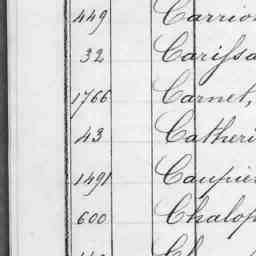 449 Carrion
32 Carissa
1766 Carnet,
43 Catheri
1491 Caupier
600 Chalop